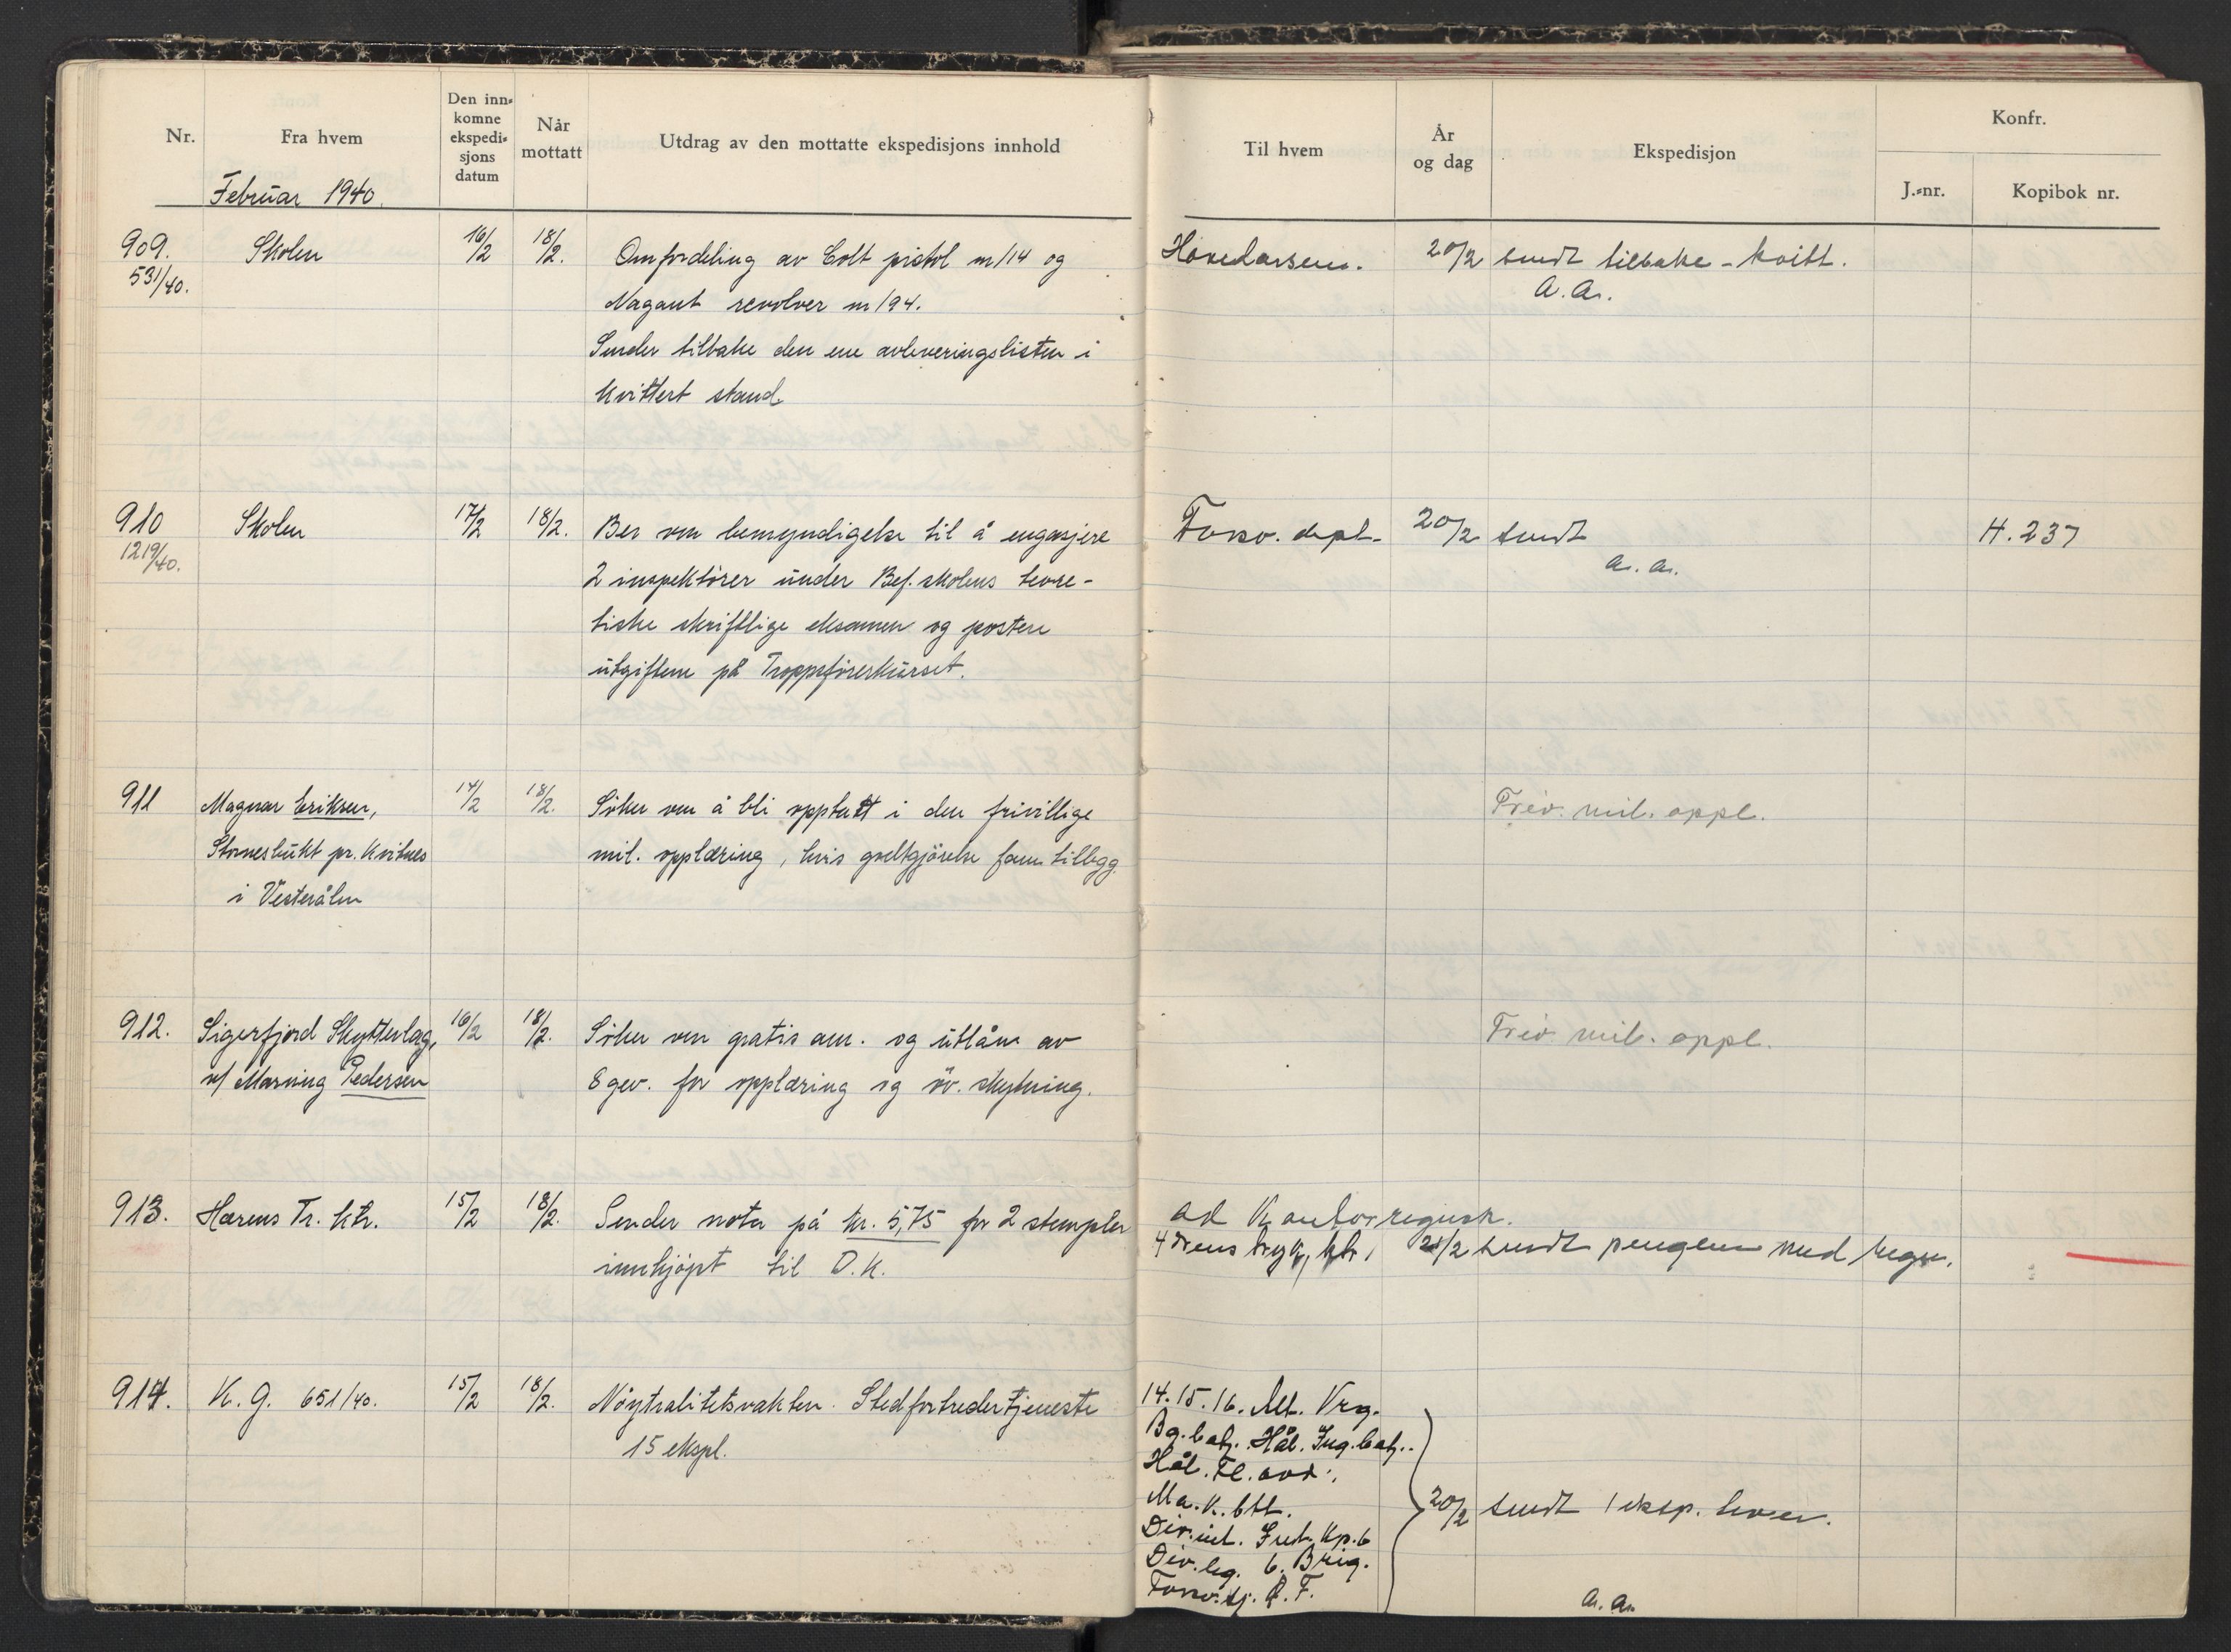 Nr.
Fra hvem
Den inn-
komne
ekspedi-
sjons
datum
Når
mottatt
Utdrag av den mottatte ekspedisjons innhold
Til hvem
År
og dag
Ekspedisjon
Konfr.
J.-nr.
Kopibok nr.
Februar 1940.
909. Skolen 16/2 18/2. Omfordeling av Colt pistol m/14 og
531/40. Nagant revolver m/94.
Sender tilbake den ene avleveringslisten i
kvittert stand.
20/2 sendt tilbake - kvitt.
A. A.
910 Skolen 17/2 18/2. Ber om bemyndigelse til å engasjere
1219/40. 2 inspektører under Bef. skolens teore-
tiske skriftlige eksamen og postere
utgiftene på Troppsförerkurset.
Forsv. dept. 20/2 sendt H. 237
A. A.
911 Magnar Eriksen, 14/2 18/2. Söker om å bli opptatt i den frivillige
Stornesbukt pr. Kvitnes mil. opplæring, hvis godtgjörelse fam. tillegg.
i Vesterålen
Friv. mil. oppl.
912. Sigerfjord Skytterlag, 16/2 18/2. Söker om gratis am. og utlån av
v/ Marning Pedersen 8 gev. for opplæring og öv. skytning.
Friv. mil. oppl.
913. Hærens Tr. ktr. 15/2 18/2. Sender nota på kr. 5,75 for 2 stempler
innkjöpt til D.K.
ad Kontorregnsk.
sendt pengene med regn.
914. K. G. 651/40. 15/2 18/2. Nöytralitetsvakten. Stedfortredertjeneste
15 ekspl.
14. 15. 16. Alt. Vrg.
Bg. batj. Hål. Ing. batj.
Hål. Fl. avd.
Ma. K. btl.
Div. int. Kp. 6
Div. leg. 6. Brig.
20/2 sendt 1 eksp. hver.
A. A.